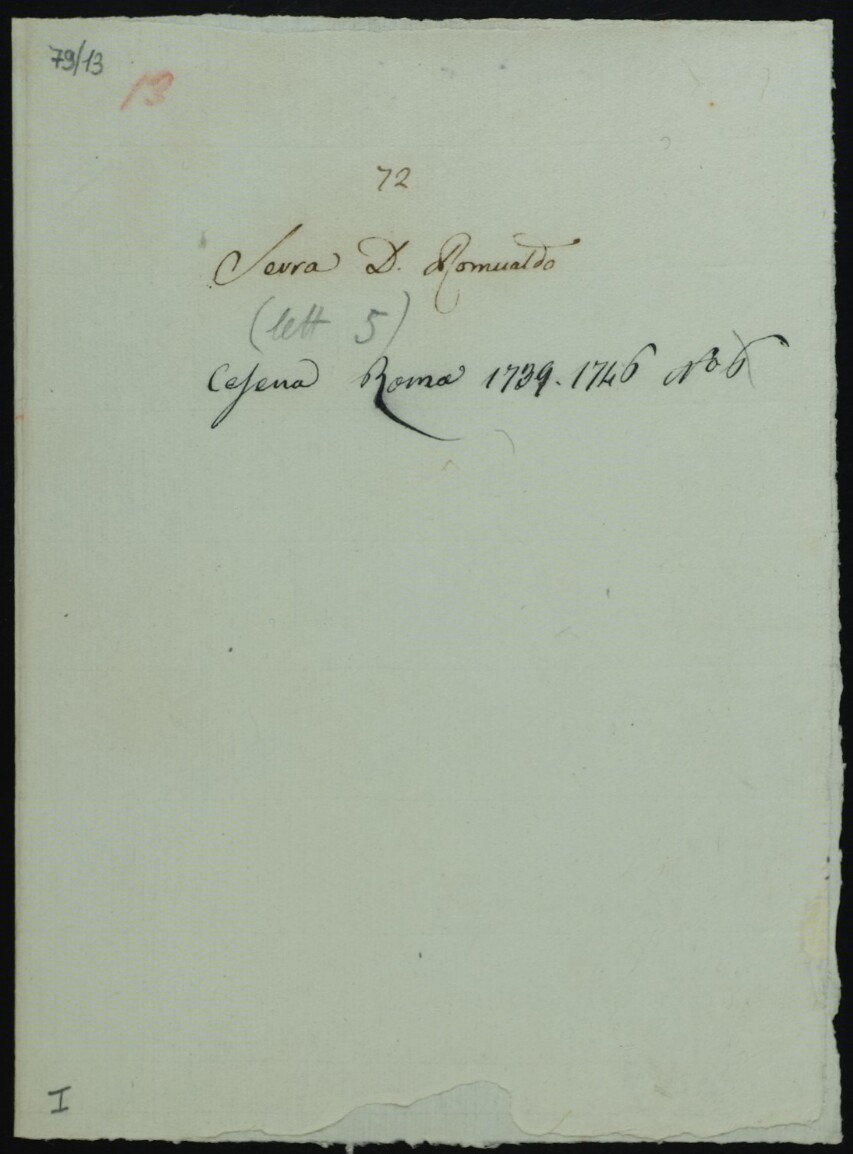 79/13
13
72
Serra D. Romualdo
(lett 5)
Cesena Roma 1739. 1746 No 6
I